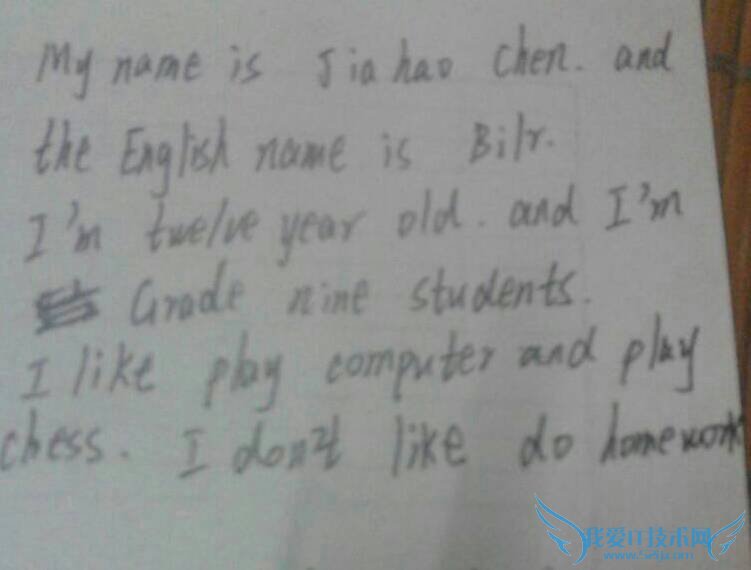 My name is Jia hao Chen. and
the English name is Bilr.
I'm twelve year old. and I'm
Grade nine students.
I like play computer and play
chess. I don't like do homework
我爱IT技术网
www.52ij.com